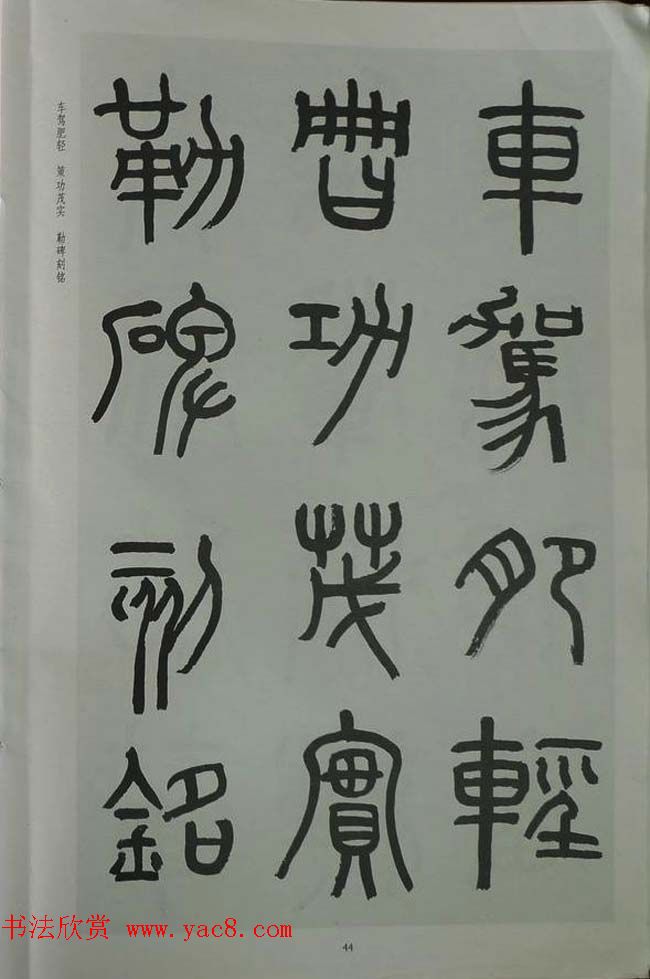 車駕肥輕
策功茂實
勒碑刻銘
车驾肥轻 策功茂实 勒碑刻铭
书法欣赏 www.yac8.com
44